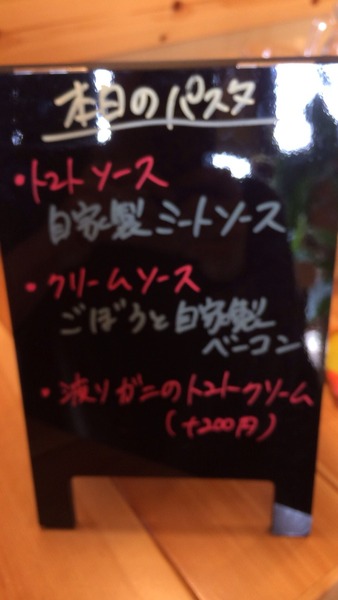 本日のパスタ
・トマトソース
自家製ミートソース
・クリームソース
ごぼうと自家製
ベーコン
・渡りガニのトマトクリーム
(+200円)